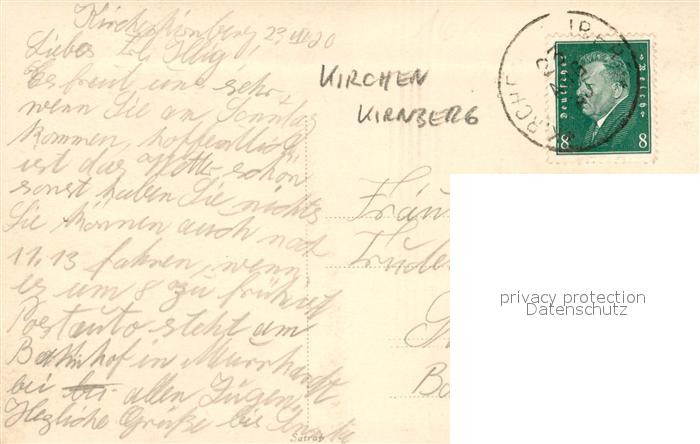 Kirchenkirnberg, 23. VII 30
Liebes Frl. Illig!
Es freut uns sehr,
wenn Sie am Sonntag
kommen, hoffentlich
ist das schön
sonst haben Sie nichts
Sie können auch nach
11.13 fahren, wenn
es um 8 zu früh ist
Postauto steht am
Bahnhof in Murrhardt
bei allen Zügen
Herzliche Grüße bis
KIRCHEN
KIRNBERG
Deutsches Reich
8 8
KIRCHE
Fräu
Trude
Ba
privacy protection
Datenschutz